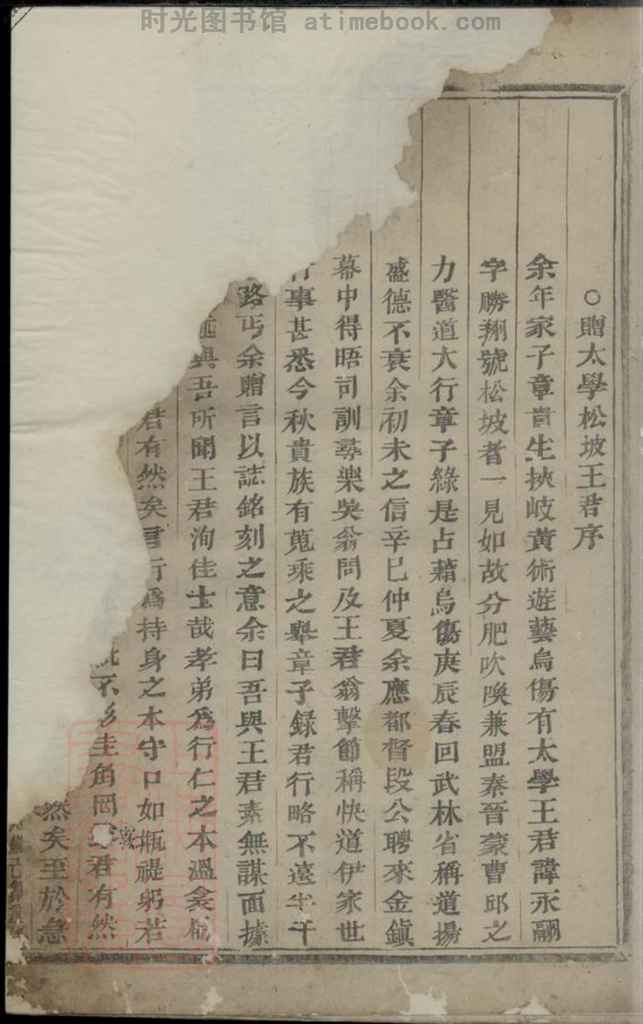 时光图书馆 atimebook.com
○贈太學松坡王君序
余年家子章貴生挾岐黃術遊藝烏傷有太學王君諱永翮
字勝翔號松坡者一見如故分肥吹喚兼盟秦晉蒙曹邱之
力醫道大行章子緣是占藉烏傷庚辰春回武林省稱道揚
盛德不衰余初未之信辛巳仲夏余應都督段公聘來金鎮
幕中得晤司訓尋樂吳翁問及王君翁擊節稱快道伊家世
行事甚悉今秋貴族有蒐乘之舉章子錄君行略不遠千
路丐余贈言以誌銘刻之意余曰吾與王君素無謀面據
述與吾所聞王君洵佳士哉孝弟為行仁之本溫
君有然矣言行為持身之本守口如瓶禔躬若
不 圭角 君有然
然矣至於急